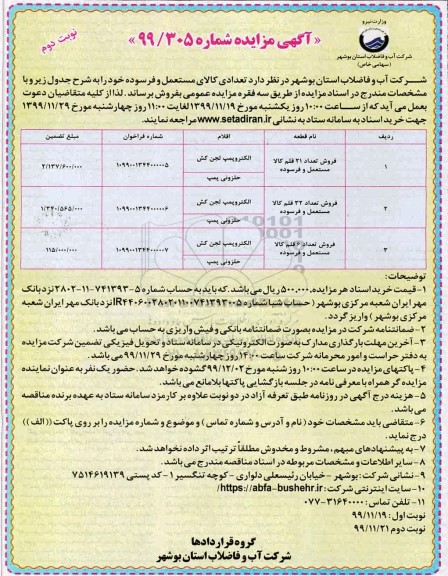 وزارت نیرو
شرکت آب و فاضلاب استان بوشهر
(سهامی خاص)
«آگهی مزایده شماره ۹۹/۳۰۵»
نوبت دوم
شرکت آب و فاضلاب استان بوشهر در نظر دارد تعدادی کالای مستعمل و فرسوده خود را به شرح جدول زیر و با
مشخصات مندرج در اسناد مزایده از طریق سه فقره مزایده عمومی بفروش برساند. لذا از کلیه متقاضیان دعوت
بعمل می آید که از ساعت ۱۰:۰۰ روز یکشنبه مورخ ۱۳۹۹/۱۱/۱۹ لغایت ۱۱:۰۰ روز چهارشنبه مورخ ۱۳۹۹/۱۱/۲۹
جهت خرید اسناد به سامانه ستاد به نشانی www.setadiran.ir مراجعه نمایند.
ردیف نام قطعه اقلام شماره فراخوان مبلغ تضمین
۱ فروش تعداد ۲۱ قلم کالا مستعمل و فرسوده الکتروپمپ لجن کش حلزونی پمپ ۱۰۹۹۰۰۱۳۴۴۰۰۰۰۰۵ ۲/۱۳۷/۶۰۰/۰۰۰
۲ فروش تعداد ۳۲ قلم کالا مستعمل و فرسوده الکتروپمپ لجن کش حلزونی پمپ ۱۰۹۹۰۰۱۳۴۴۰۰۰۰۰۶ ۱/۳۴۰/۵۶۵/۰۰۰
۳ فروش تعداد ۶ قلم کالا مستعمل و فرسوده الکتروپمپ لجن کش حلزونی پمپ ۱۰۹۹۰۰۱۳۴۴۰۰۰۰۰۷ ۱۱۵/۰۰۰/۰۰۰
توضیحات:
۱- قیمت خرید اسناد هر مزایده، ۵۰۰.۰۰۰ ریال می باشد. که باید به حساب شماره ۵-۷۴۱۳۹۳-۱۱-۲۸۰۲ نزد بانک
مهر ایران شعبه مرکزی بوشهر (حساب شبا شماره نزد بانک مهر ایران شعبه
مرکزی بوشهر) واریز گردد.
۲- ضمانتنامه شرکت در مزایده بصورت ضمانتنامه بانکی و فیش واریزی به حساب می باشد.
۳- آخرین مهلت بارگذاری مدارک به صورت الکترونیکی در سامانه ستاد و تحویل فیزیکی تضمین شرکت مزایده
به دفتر حراست و امور محرمانه شرکت ساعت ۱۴:۰۰ روز چهارشنبه مورخ ۹۹/۱۱/۲۹ می باشد.
۴- پاکتهای مزایده در ساعت ۱۰:۰۰ روز شنبه مورخ ۹۹/۱۲/۰۲ گشوده خواهد شد. حضور یک نفر به عنوان نماینده
مزایده گر همراه با معرفی نامه در جلسه بازگشایی پاکتها بلامانع می باشد.
۵- هزینه درج آگهی در روزنامه طبق تعرفه آزاد در دو نوبت علاوه بر کارمزد سامانه ستاد به عهده برنده مناقصه
می باشد.
۶- متقاضی باید مشخصات خود (نام و آدرس و شماره تماس) و موضوع و شماره مزایده را بر روی پاکت ((الف))
درج نماید.
۷- به پیشنهادهای مبهم، مشروط و مخدوش مطلقاً ترتیب اثر داده نخواهد شد.
۸- سایر اطلاعات و مشخصات مربوطه در اسناد مناقصه مندرج می باشد.
۹- نشانی شرکت: بوشهر - خیابان رئیسعلی دلواری - کوچه تنگسیر ۱- کد پستی ۷۵۱۴۶۱۹۱۳۹
۱۰- سایت اینترنتی شرکت: https://abfa-bushehr.ir/
۱۱- تلفن تماس: ۳۱۶۴۰۰۰۰-۰۷۷
نوبت اول: ۹۹/۱۱/۱۹
نوبت دوم: ۹۹/۱۱/۲۱
گروه قراردادها
شرکت آب و فاضلاب استان بوشهر